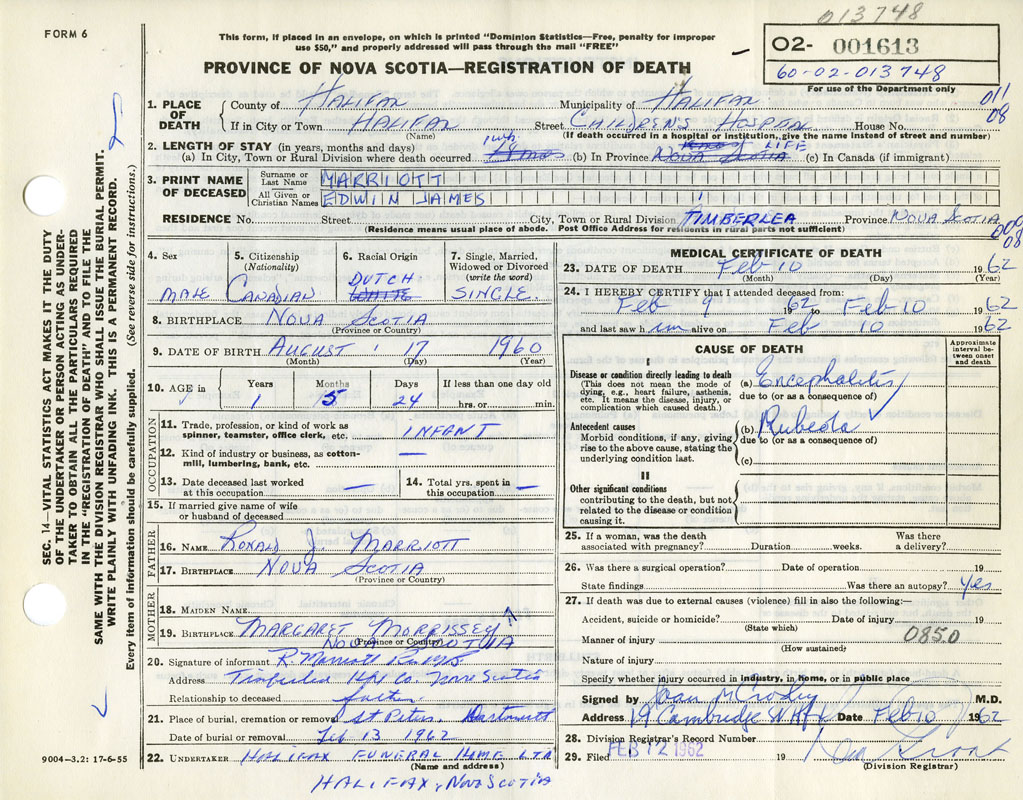 013748
FORM 6
This form, if placed in an envelope, on which is printed "Dominion Statistics—Free, penalty for improper
use $50," and properly addressed will pass through the mail "FREE"
O2- 001613
60-02-013748
For use of the Department only
PROVINCE OF NOVA SCOTIA—REGISTRATION OF DEATH
011
08
1. PLACE OF DEATH { County of HALIFAX Municipality of HALIFAX
If in City or Town HALIFAX Street CHILDREN'S HOSPITAL House No.
(Name) (If death occurred in a hospital or institution, give the name instead of street and number)
2. LENGTH OF STAY (in years, months and days)
(a) In City, Town or Rural Division where death occurred (b) In Province NOVA SCOTIA LIFE (c) In Canada (if immigrant)
3. PRINT NAME OF DECEASED
Surname or Last Name MARRIOTT
All Given or Christian Names EDWIN JAMES
RESIDENCE No. Street City, Town or Rural Division TIMBERLEA Province NOVA SCOTIA
(Residence means usual place of abode. Post Office Address for residents in rural parts not sufficient)
000
08
4. Sex MALE
5. Citizenship (Nationality) CANADIAN
6. Racial Origin DUTCH WHITE
7. Single, Married, Widowed or Divorced (write the word) SINGLE.
8. BIRTHPLACE NOVA SCOTIA
(Province or Country)
9. DATE OF BIRTH AUGUST 17 1960
(Month) (Day) (Year)
10. AGE in { Years Months Days If less than one day old
1 5 24 hrs. or min.
OCCUPATION
11. Trade, profession, or kind of work as
spinner, teamster, office clerk, etc. INFANT
12. Kind of industry or business, as cotton-
mill, lumbering, bank, etc. —
13. Date deceased last worked
at this occupation —
14. Total yrs. spent in
this occupation —
15. If married give name of wife
or husband of deceased
FATHER
16. NAME RONALD J. MARRIOTT
17. BIRTHPLACE NOVA SCOTIA
(Province or Country)
MOTHER
18. MAIDEN NAME
19. BIRTHPLACE MARGARET MORRISSEY
NOVA SCOTIA
(Province or Country)
20. Signature of informant R. Marriott
Address Timberlea Hfx Co. Nova Scotia
Relationship to deceased father
21. Place of burial, cremation or removal St Peters. Dartmouth
Date of burial or removal Feb 13 1962
22. UNDERTAKER HALIFAX FUNERAL HOME LTD
(Name and address)
HALIFAX, NOVA SCOTIA
MEDICAL CERTIFICATE OF DEATH
23. DATE OF DEATH Feb 10 1962
(Month) (Day) (Year)
24. I HEREBY CERTIFY that I attended deceased from:
Feb 9 1962 to Feb 10 1962
and last saw him alive on Feb 10 1962
CAUSE OF DEATH
Approximate interval between onset and death
I
Disease or condition directly leading to death
(This does not mean the mode of
dying, e.g., heart failure, asthenia,
etc. It means the disease, injury, or
complication which caused death.)
(a) Encephalitis
due to (or as a consequence of)
Antecedent causes
Morbid conditions, if any, giving
rise to the above cause, stating the
underlying condition last.
(b) Rubeola
due to (or as a consequence of)
(c)
II
Other significant conditions
contributing to the death, but not
related to the disease or condition
causing it.
25. If a woman, was the death Was there
associated with pregnancy? Duration weeks. a delivery?
26. Was there a surgical operation? Date of operation 19
State findings Was there an autopsy? yes
27. If death was due to external causes (violence) fill in also the following:—
Accident, suicide or homicide? Date of injury 19
(State which)
Manner of injury 085.0
(How sustained)
Nature of injury
Specify whether injury occurred in industry, in home, or in public place
Signed by Joan M Crosby M.D.
Address 19 Cambridge Date Feb 10 1962
28. Division Registrar's Record Number
29. Filed FEB 12 1962 19
(Division Registrar)
SEC. 14—VITAL STATISTICS ACT MAKES IT THE DUTY
OF THE UNDERTAKER OR PERSON ACTING AS UNDER-
TAKER TO OBTAIN ALL THE PARTICULARS REQUIRED
IN THE "REGISTRATION OF DEATH" AND TO FILE THE
SAME WITH THE DIVISION REGISTRAR WHO SHALL ISSUE THE BURIAL PERMIT.
WRITE PLAINLY WITH UNFADING INK. THIS IS A PERMANENT RECORD.
Every item of information should be carefully supplied. (See reverse side for instructions.)
9004—3.2: 17-6-55